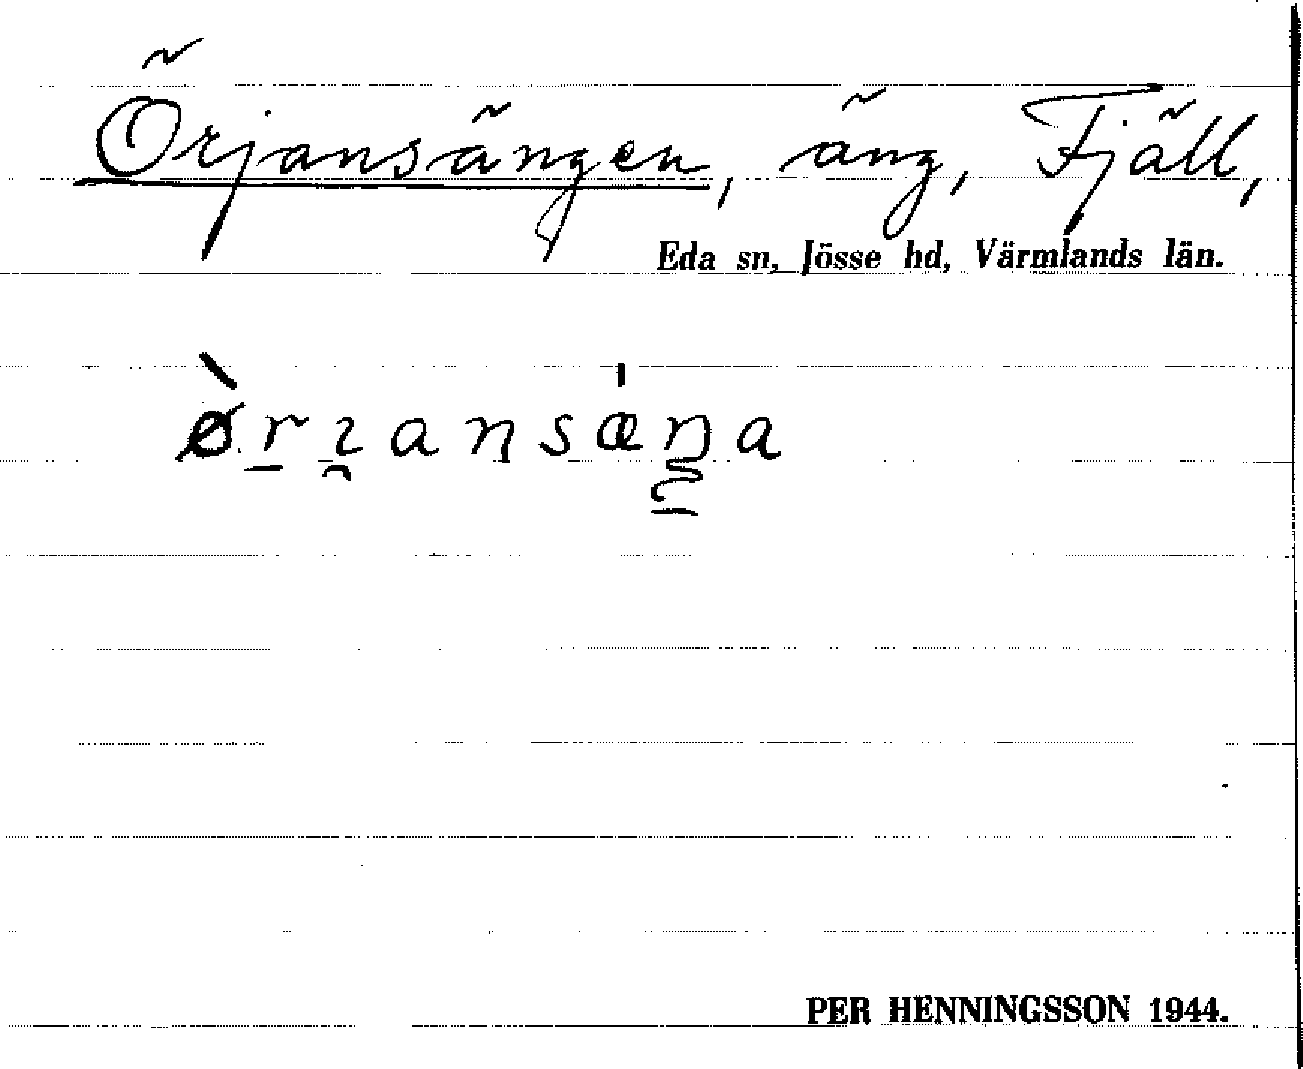 Örjansängen, äng, Fjäll,
Eda sn, Jösse hd, Värmlands län.
ø̀r̠ı̯ansæ̍ŋa
PER HENNINGSSON 1944.